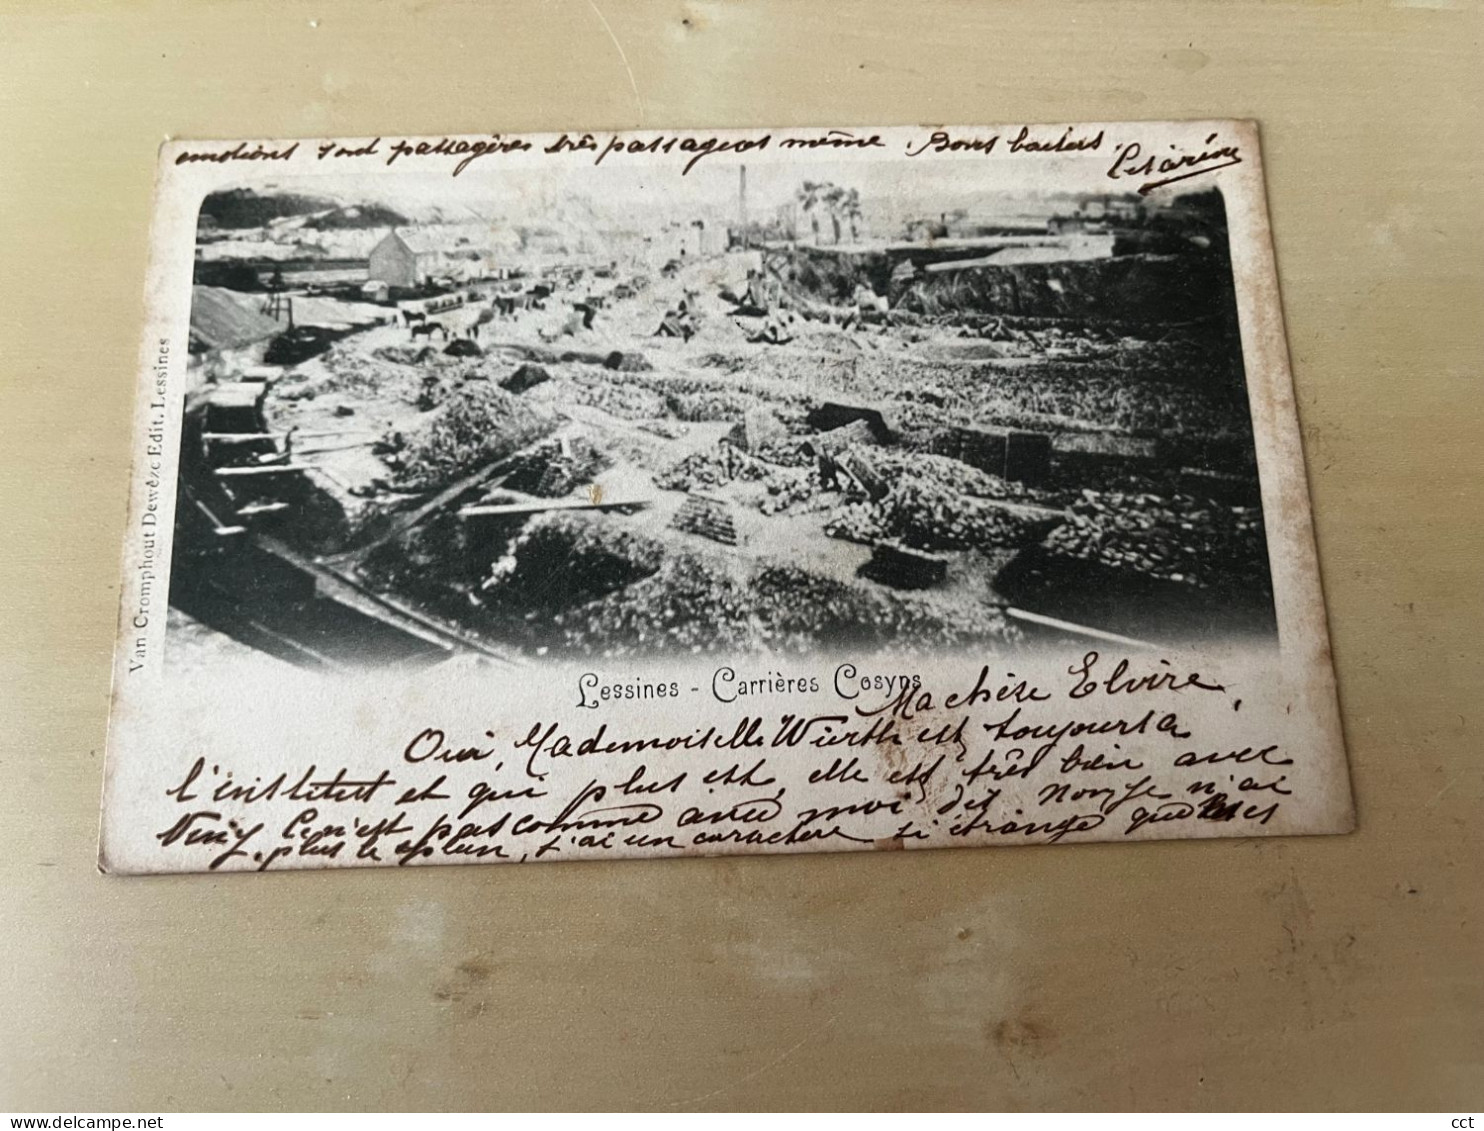 emotions sont passagères très passagères même. Bons baisers.
Césarine
Van Cromphout Dewèze Edit. Lessines
Lessines - Carrières Cosyns
Ma chère Elvire,
Oui, Mademoiselle Wurth est toujours à
l'institut et qui plus est, elle est très bien avec
ce n'est pas comme avec moi dis. Moi je n'ai
plus le spleen, j'ai un caractère si étrange que mes
delcampe.net
cct